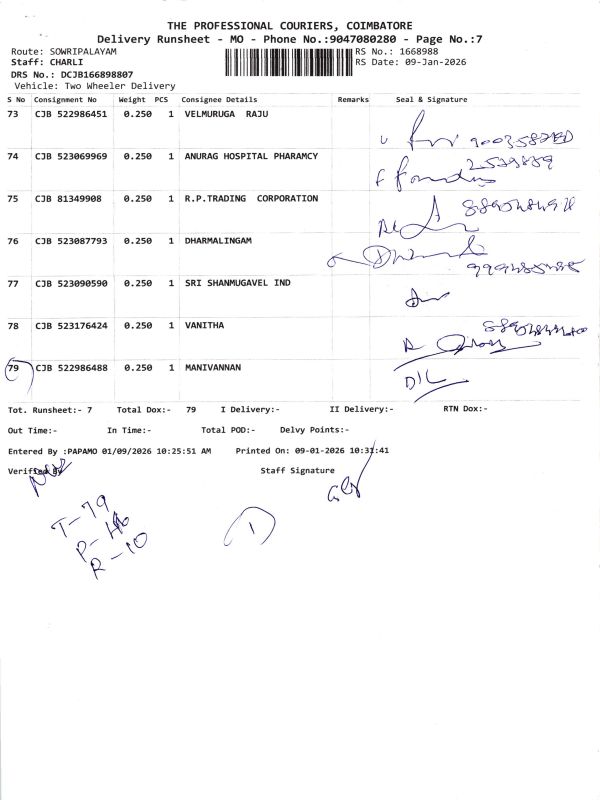 THE PROFESSIONAL COURIERS, COIMBATORE
Delivery Runsheet - MO - Phone No.:9047080280 - Page No.:7
Route: SOWRIPALAYAM RS No.: 1668988
Staff: CHARLI RS Date: 09-Jan-2026
DRS No.: DCJB166898807
Vehicle: Two Wheeler Delivery
S No Consignment No Weight PCS Consignee Details Remarks Seal & Signature
73 CJB 522986451 0.250 1 VELMURUGA RAJU
74 CJB 523069969 0.250 1 ANURAG HOSPITAL PHARAMCY
75 CJB 81349908 0.250 1 R.P.TRADING CORPORATION
76 CJB 523087793 0.250 1 DHARMALINGAM
77 CJB 523090590 0.250 1 SRI SHANMUGAVEL IND
78 CJB 523176424 0.250 1 VANITHA
79 CJB 522986488 0.250 1 MANIVANNAN
D/L
Tot. Runsheet:- 7 Total Dox:- 79 I Delivery:- II Delivery:- RTN Dox:-
Out Time:- In Time:- Total POD:- Delvy Points:-
Entered By :PAPAMO 01/09/2026 10:25:51 AM Printed On: 09-01-2026 10:31:41
Verified By Staff Signature
T-79
R-10
1